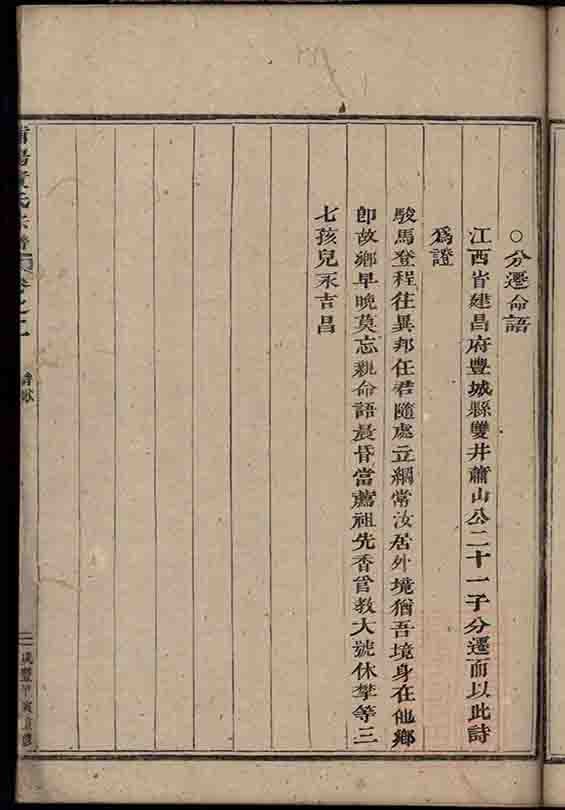 ○分遷命語
江西省建昌府豐城縣雙井蕭山公二十一子分遷而以此詩
爲證
駿馬登程往異邦任君隨處立綱常汝居外境猶吾境身在他鄉
卽故鄉早晚莫忘親命語晨昏當薦祖先香管教大號休攀等三
七孩兒永吉昌
氏宗譜 卷之二
咸豐甲寅